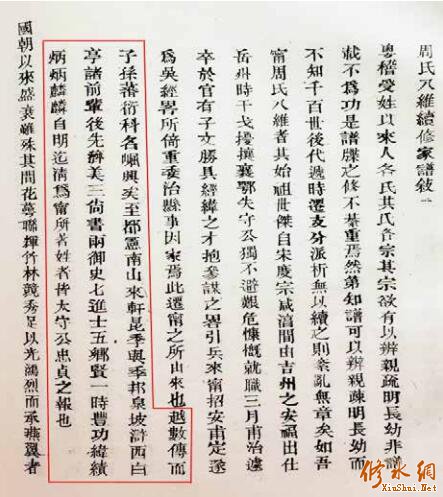 周氏八維續修家譜敘
粵稽受姓以來人各氏其氏各宗其宗欲有以辨親疏明長幼非譜
載不為功是譜牒之修不綦重焉然第知譜可以辨親疎明長幼而
不知千百世後代遞時遷支分派析無以續之則紊亂無章矣如吾
甯周氏八維者其始祖世傑自宋度宗咸淳間由吉州之安福出仕
岳州時干戈擾攘襄鄂失守公獨不避艱危慷慨就職三月甫治遽
卒於官有子文勝具經緯之才抱參謀之畧引兵來甯招安甫定遂
為吳經畧所倚重委治縣事因家焉此遷甯之所由來也越數傳而
子孫蕃衍科名颯興矣至都憲南山來軒昆季與季邦泉坡滸西白
亭諸前輩後先濟美三尚書兩御史七進士五鄉賢一時豐功緯績
炳炳麟麟自明迄清為甯所著姓者皆太守公忠貞之報也
國朝以來盛衰雖殊其間花萼聯輝竹林競秀足以光鴻烈而承燕翼者
修水網
XiuShui.Net